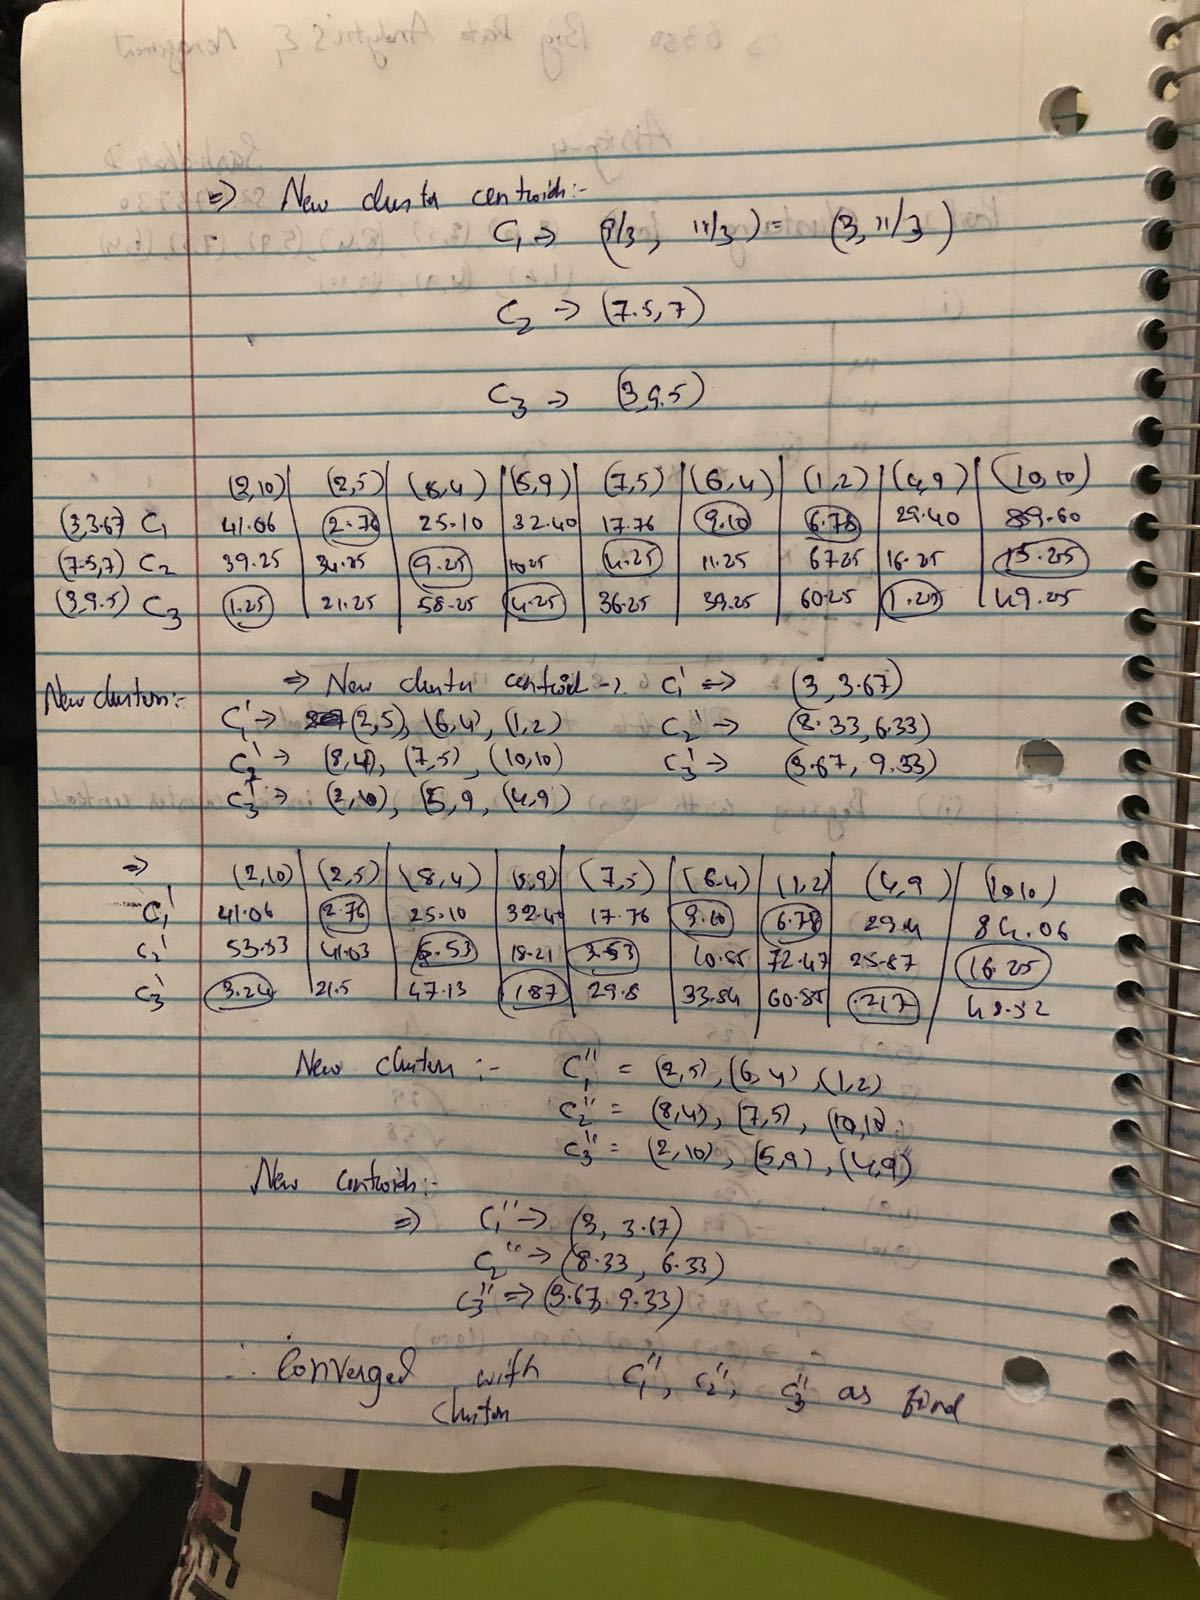 => New cluster centroids:-
C1 => (9/3, 11/3) = (3, 11/3)
C2 -> (7.5, 7)
C3 -> (3, 9.5)
(2,10) | (2,5) | (8,4) | (5,9) | (7,5) | (6,4) | (1,2) | (4,9) | (10,10)
(3,3.67) C1 41.06 | 2.76 | 25.10 | 32.40 | 17.76 | 9.10 | 6.78 | 29.40 | 89.60
(7.5,7) C2 39.25 | 34.25 | 9.25 | 10.25 | 4.25 | 11.25 | 67.25 | 16.25 | 15.25
(3,9.5) C3 1.25 | 21.25 | 58.25 | 4.25 | 36.25 | 39.25 | 60.25 | 1.25 | 49.25
=> New cluster centroid -> C1' => (3, 3.67)
New clusters:-
C1' -> (2,5), (6,4), (1,2) C2' -> (8.33, 6.33)
C2' -> (8,4), (7,5), (10,10) C3' -> (3.67, 9.33)
C3' -> (2,10), (5,9, (4,9)
=> (2,10) | (2,5) | (8,4) | (5,9) | (7,5) | (6,4) | (1,2) | (4,9) | (10,10)
C1' 41.06 | 2.76 | 25.10 | 32.40 | 17.76 | 9.10 | 6.78 | 29.4 | 84.06
C2' 53.53 | 41.03 | 5.53 | 18.21 | 3.53 | 10.85 | 72.47 | 25.87 | 16.25
C3' 3.24 | 21.5 | 47.13 | 1.87 | 29.8 | 33.84 | 60.85 | .217 | 48.52
New clusters :- C1'' = (2,5), (6,4), (1,2)
C2'' = (8,4), (7,5), (10,10
C3'' = (2,10), (5,9), (4,9)
New centroids:-
=> C1'' -> (3, 3.67)
C2'' -> (8.33, 6.33)
C3'' => (3.67, 9.33)
∴ Converged with C1'', C2'', C3'' as final
clusters